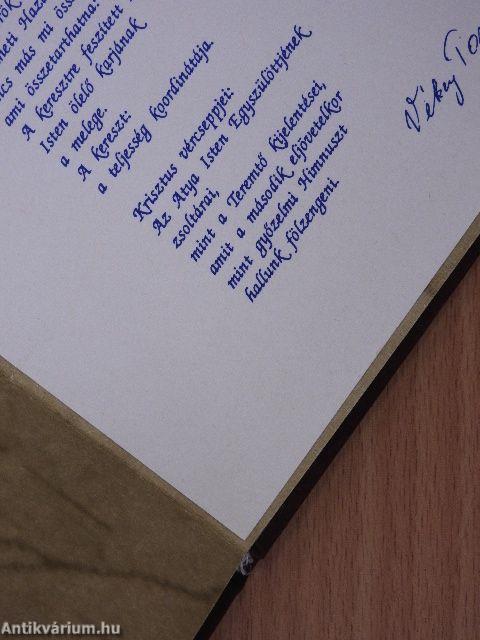 meti Haz
cs más mi öss
ami összetarthatna:
A keresztre feszített
Isten ölelő karjának
a melege.
A kereszt:
a teljesség koordinátája.
Krisztus vércseppjei:
Az Atya Isten Egyszülöttjének
zsoltárai,
mint a Teremtő kijelentései,
amit a második eljövetelkor
mint győzelmi Himnuszt
hallunk fölzengeni
Antikvárium.hu